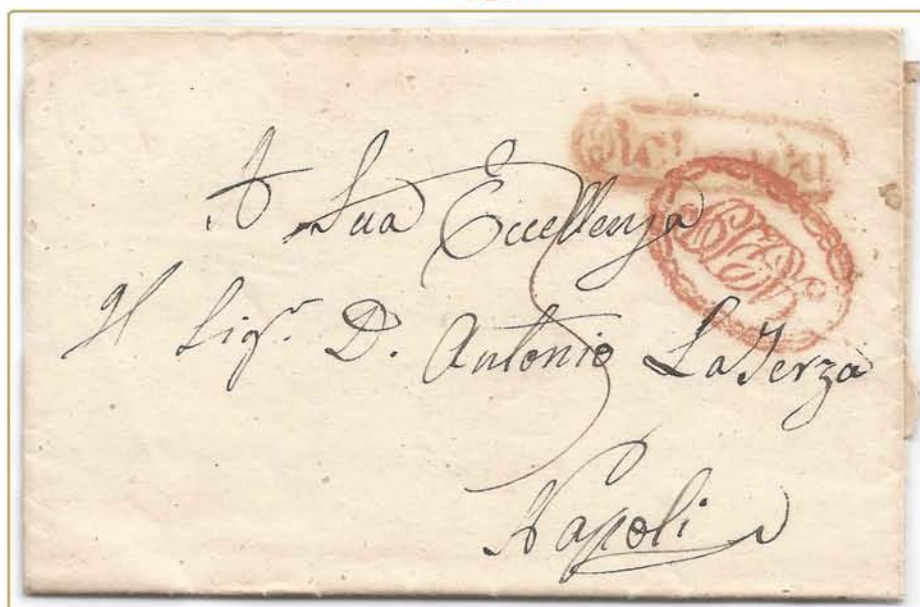 A Sua Eccellenza
Il Sigr. D. Antonio LaTerza
Napoli